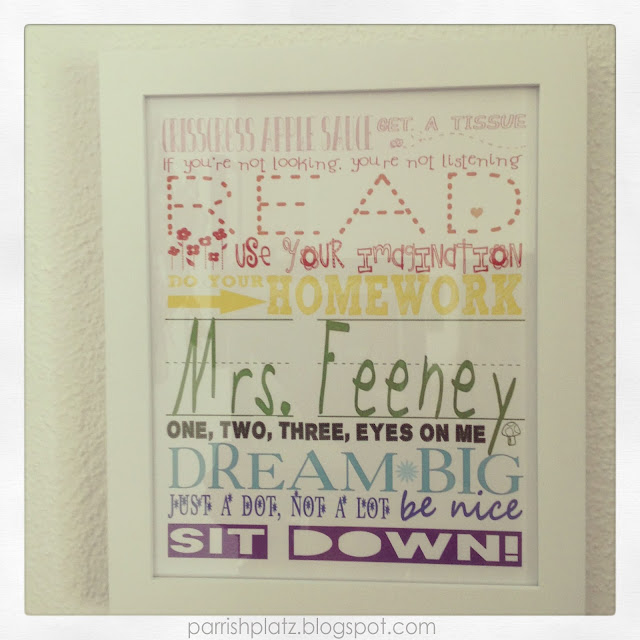 CRISSCROSS APPLE SAUCE GET A TISSUE
If you're not looking, you're not listening
READ
USE YOUR IMAGINATION
DO YOUR HOMEWORK
Mrs. Feeney
ONE, TWO, THREE, EYES ON ME
DREAM BIG
JUST A DOT, NOT A LOT be nice
SIT DOWN!
parrishplatz.blogspot.com